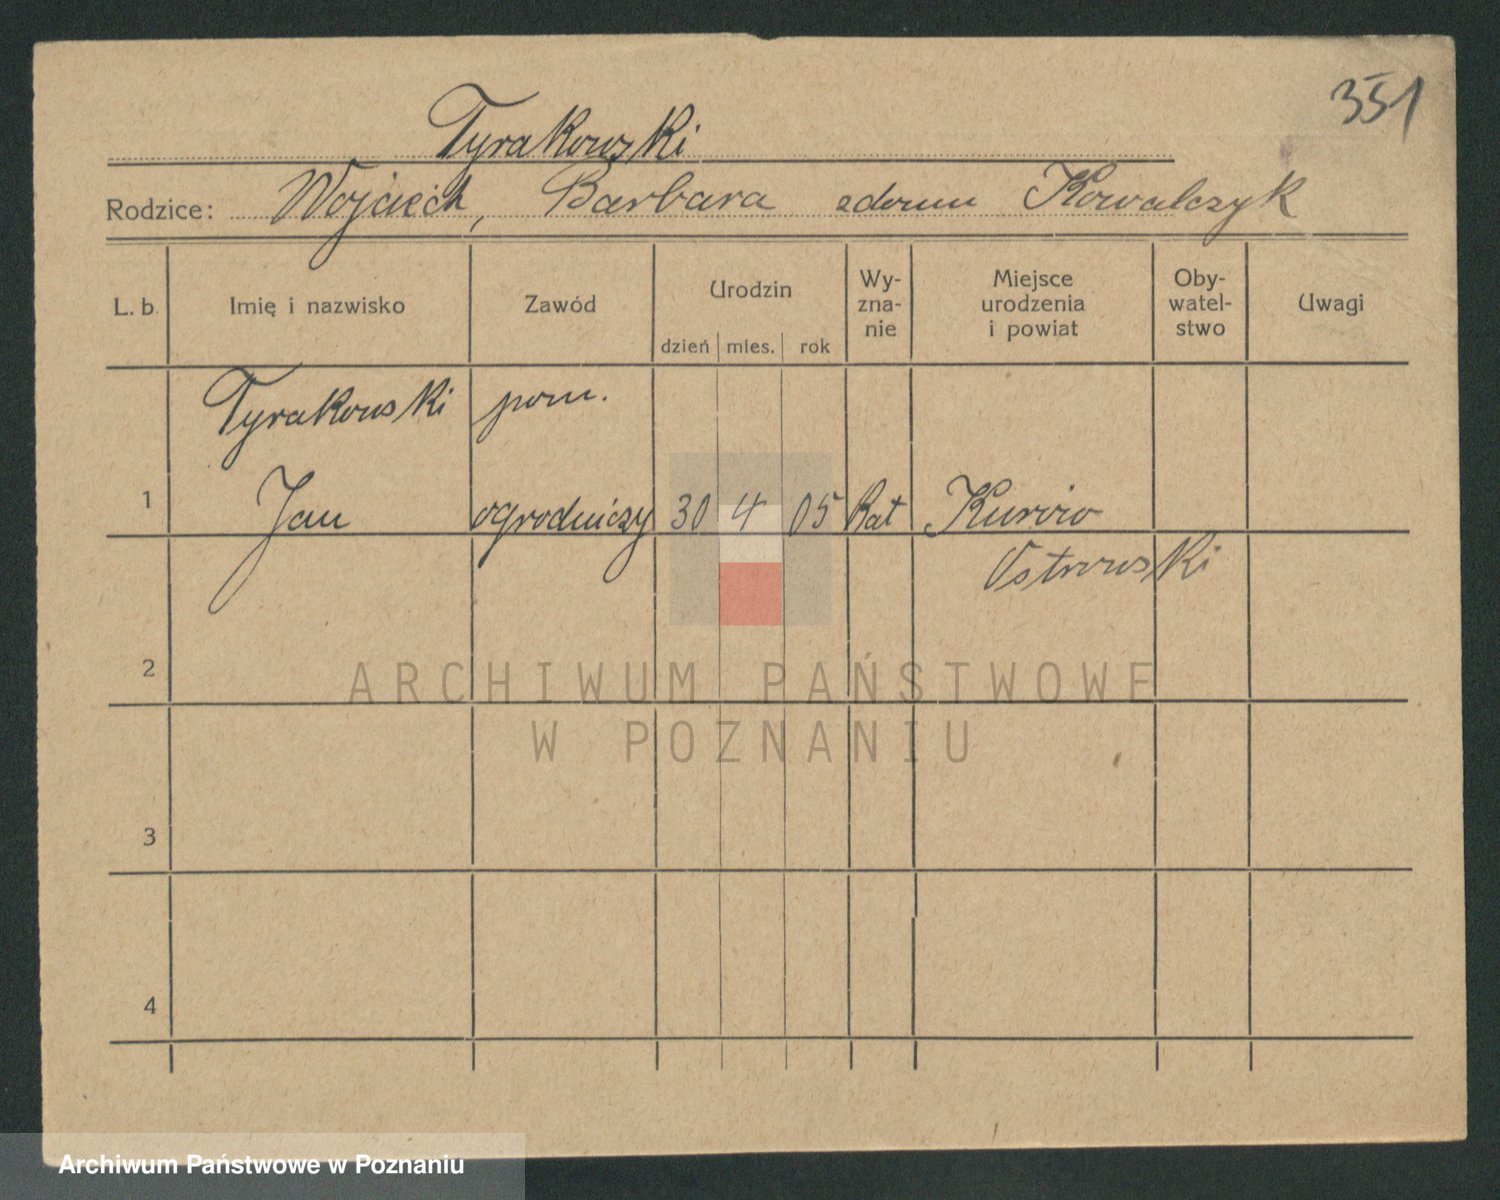 351
Tyrakowski
Rodzice: Wojciech, Barbara zdomu Kowalczyk
L. b. Imię i nazwisko Zawód Urodzin Wy-zna-nie Miejsce urodzenia i powiat Oby-watel-stwo Uwagi
dzień mies. rok
Tyrakowski pom.
1 Jan ogrodniczy 30 4 05 kat Kurów
Ostrowski
2
ARCHIWUM PAŃSTWOWE
W POZNANIU
3
4
Archiwum Państwowe w Poznaniu